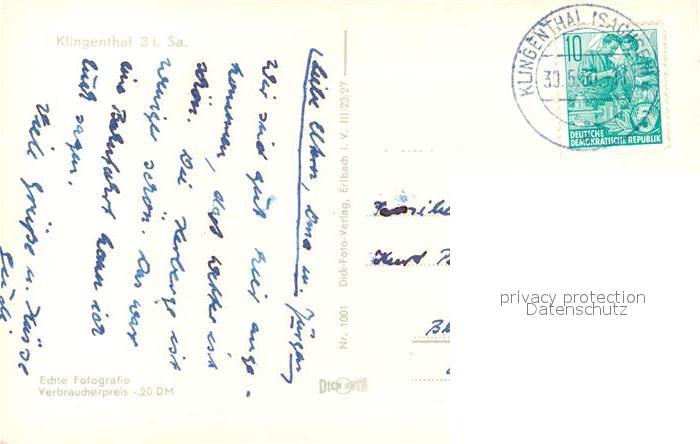 Klingenthal 3 i. Sa.
Liebe Eltern, Oma u. Jürgen
Wir sind gut hier ange-
kommen, das Wetter ist
schön. Die Herberge ist
weniger schön. Das war
eine Bahnfahrt kann ich
Euch sagen.
Viele Grüße u. Küsse
Echte Fotografie
Verbraucherpreis -.20 DM
Nr. 1001 Dick-Foto-Verlag, Erlbach i. V. III/23/27
DICK
KLINGENTHAL (SACHSEN)
10
DEUTSCHE
DEMOKRATISCHE REPUBLIK
Familie
Kurt
privacy protection
Datenschutz